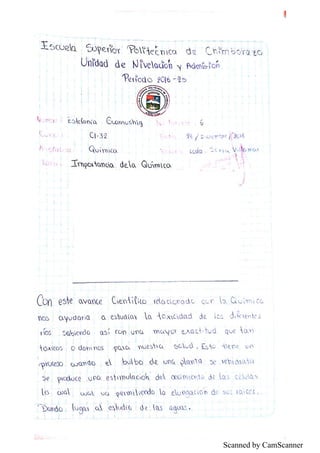 Escuela Superior Politécnica de Chimborazo
Unidad de Nivelación y Admisión
Periodo 2016-20
Estefania Guamushig 6
CI-32
Química Lcda.
Importancia de la Química
Con este avance Científico relacionado con la Química
nos ayudaria a estudiar la toxicidad de los diferentes
ríos sabiendo así con una mayor exactitud que tan
tóxicos o dañinos para nuestra salud. Esto tiene un
proceso cuando el bulbo de una planta se
se produce una estimulación del crecimiento de las células
lo cual va permitiendo la elongación de sus raíces.
Dando lugar al estudio de las aguas.
Scanned by CamScanner